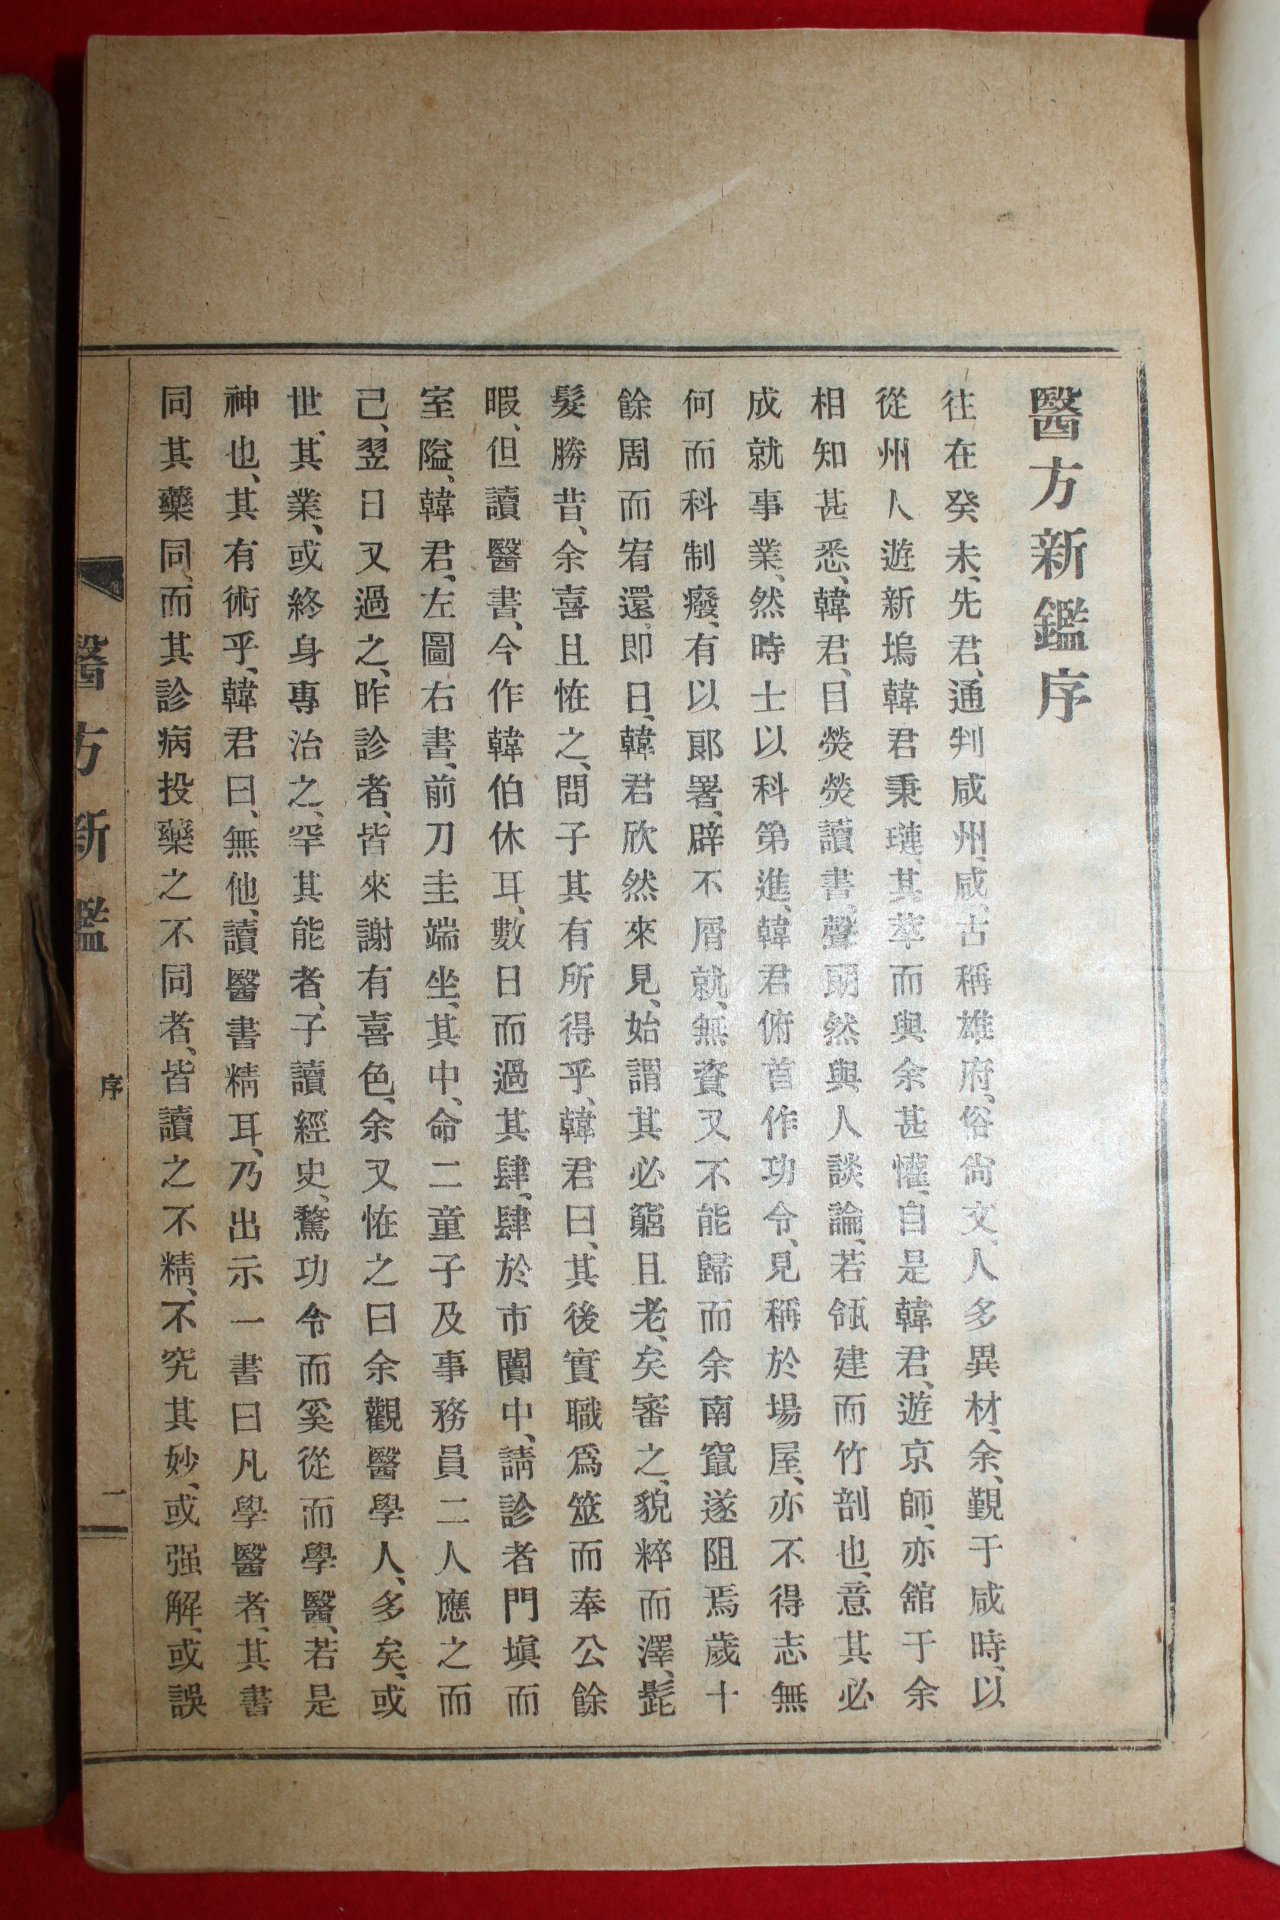 醫方新鑑序
往在癸未、先君、通判咸州、咸、古稱雄府、俗尙文、人多異材、余、覲于咸時、以
從州人遊新塢韓君秉璉、其萃而與余甚懽、自是韓君、遊京師、亦舘于余
相知甚悉、韓君、目熒熒讀書、聲朗然與人談論、若瓴建而竹剖也、意其必
成就事業、然時士以科第進、韓君俯首作功令、見稱於場屋、亦不得志無
何而科制廢、有以郞署、辟不屑就、無資、又不能歸而余南竄遂阻焉歲十
餘周而宥還、卽日、韓君欣然來見、始謂其必窮且老、矣審之、貌粹而澤、髭
髮勝昔、余喜且恠之、問子其有所得乎、韓君曰、其後實職爲筮而奉公餘
暇、但讀醫書、今作韓伯休耳、數日而過其肆、肆於市闤中、請診者門塡而
室隘、韓君、左圖右書、前刀圭端坐、其中、命二童子及事務員二人應之而
己、翌日又過之、昨診者、皆來謝有喜色、余又恠之曰余觀醫學人、多矣、或
世、其業、或終身專治之、罕其能者、子讀經史、騖功令而奚從而學醫、若是
神也、其有術乎、韓君曰、無他、讀醫書精耳、乃出示一書曰凡學醫者、其書
同其藥同、而其診病投藥之不同者、皆讀之不精、不究其妙、或强解、或誤
醫方新鑑
序
一